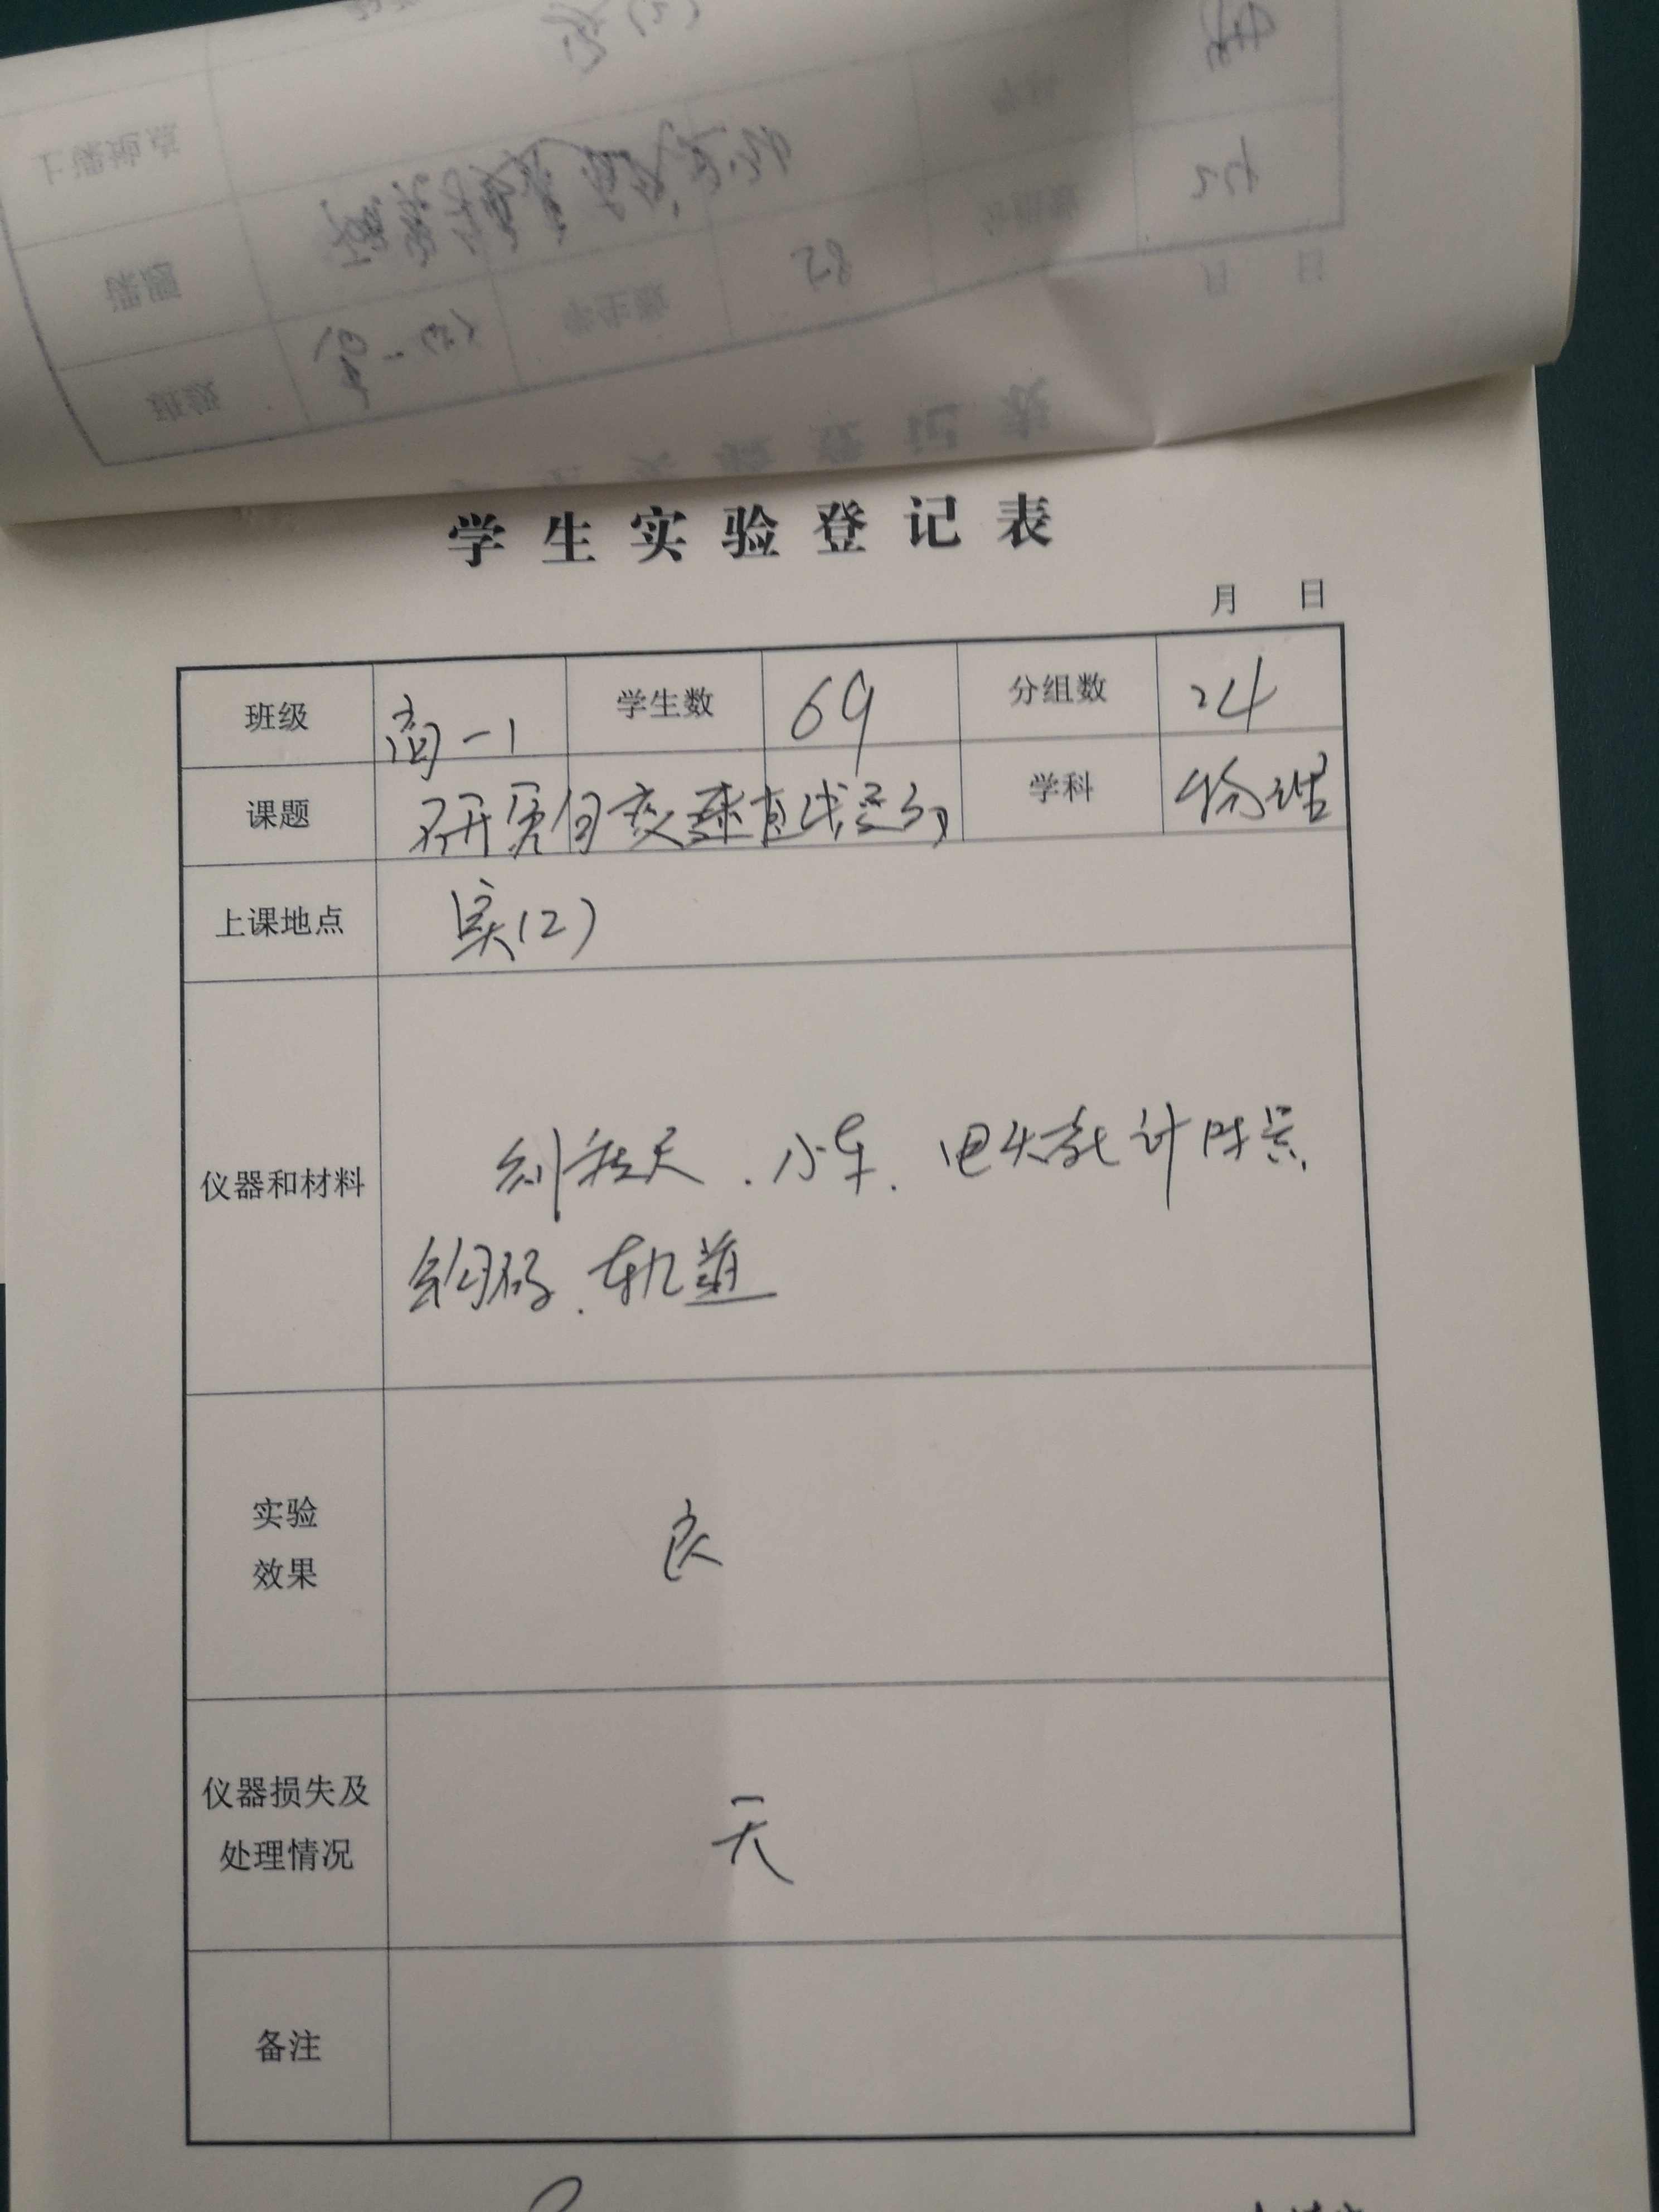 学生实验登记表
月 日
班级 高一1 学生数 69 分组数 24
课题 研究匀变速直线运动 学科 物理
上课地点 实(2)
仪器和材料 刻度尺、小车、电火花计时器
钩码、轨道
实验
效果 良
仪器损失及
处理情况 无
备注